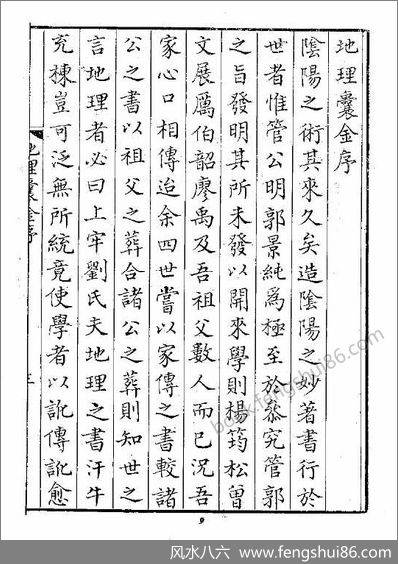 地理囊金序
陰陽之術其來久矣造陰陽之妙著書行於
世者惟管公明郭景純爲極至於叅究管郭
之旨發明其所未發以開來學則楊筠松曾
文展厲伯韶廖禹及吾祖父數人而已況吾
家心口相傳迨余四世嘗以家傳之書較諸
公之書以祖父之葬合諸公之葬則知世之
言地理者必曰上牢劉氏夫地理之書汗牛
充棟豈可泛無所統竟使學者以訛傳訛愈
地理囊金序
9
book.fengshui86.com
风水八六 www.fengshui86.com